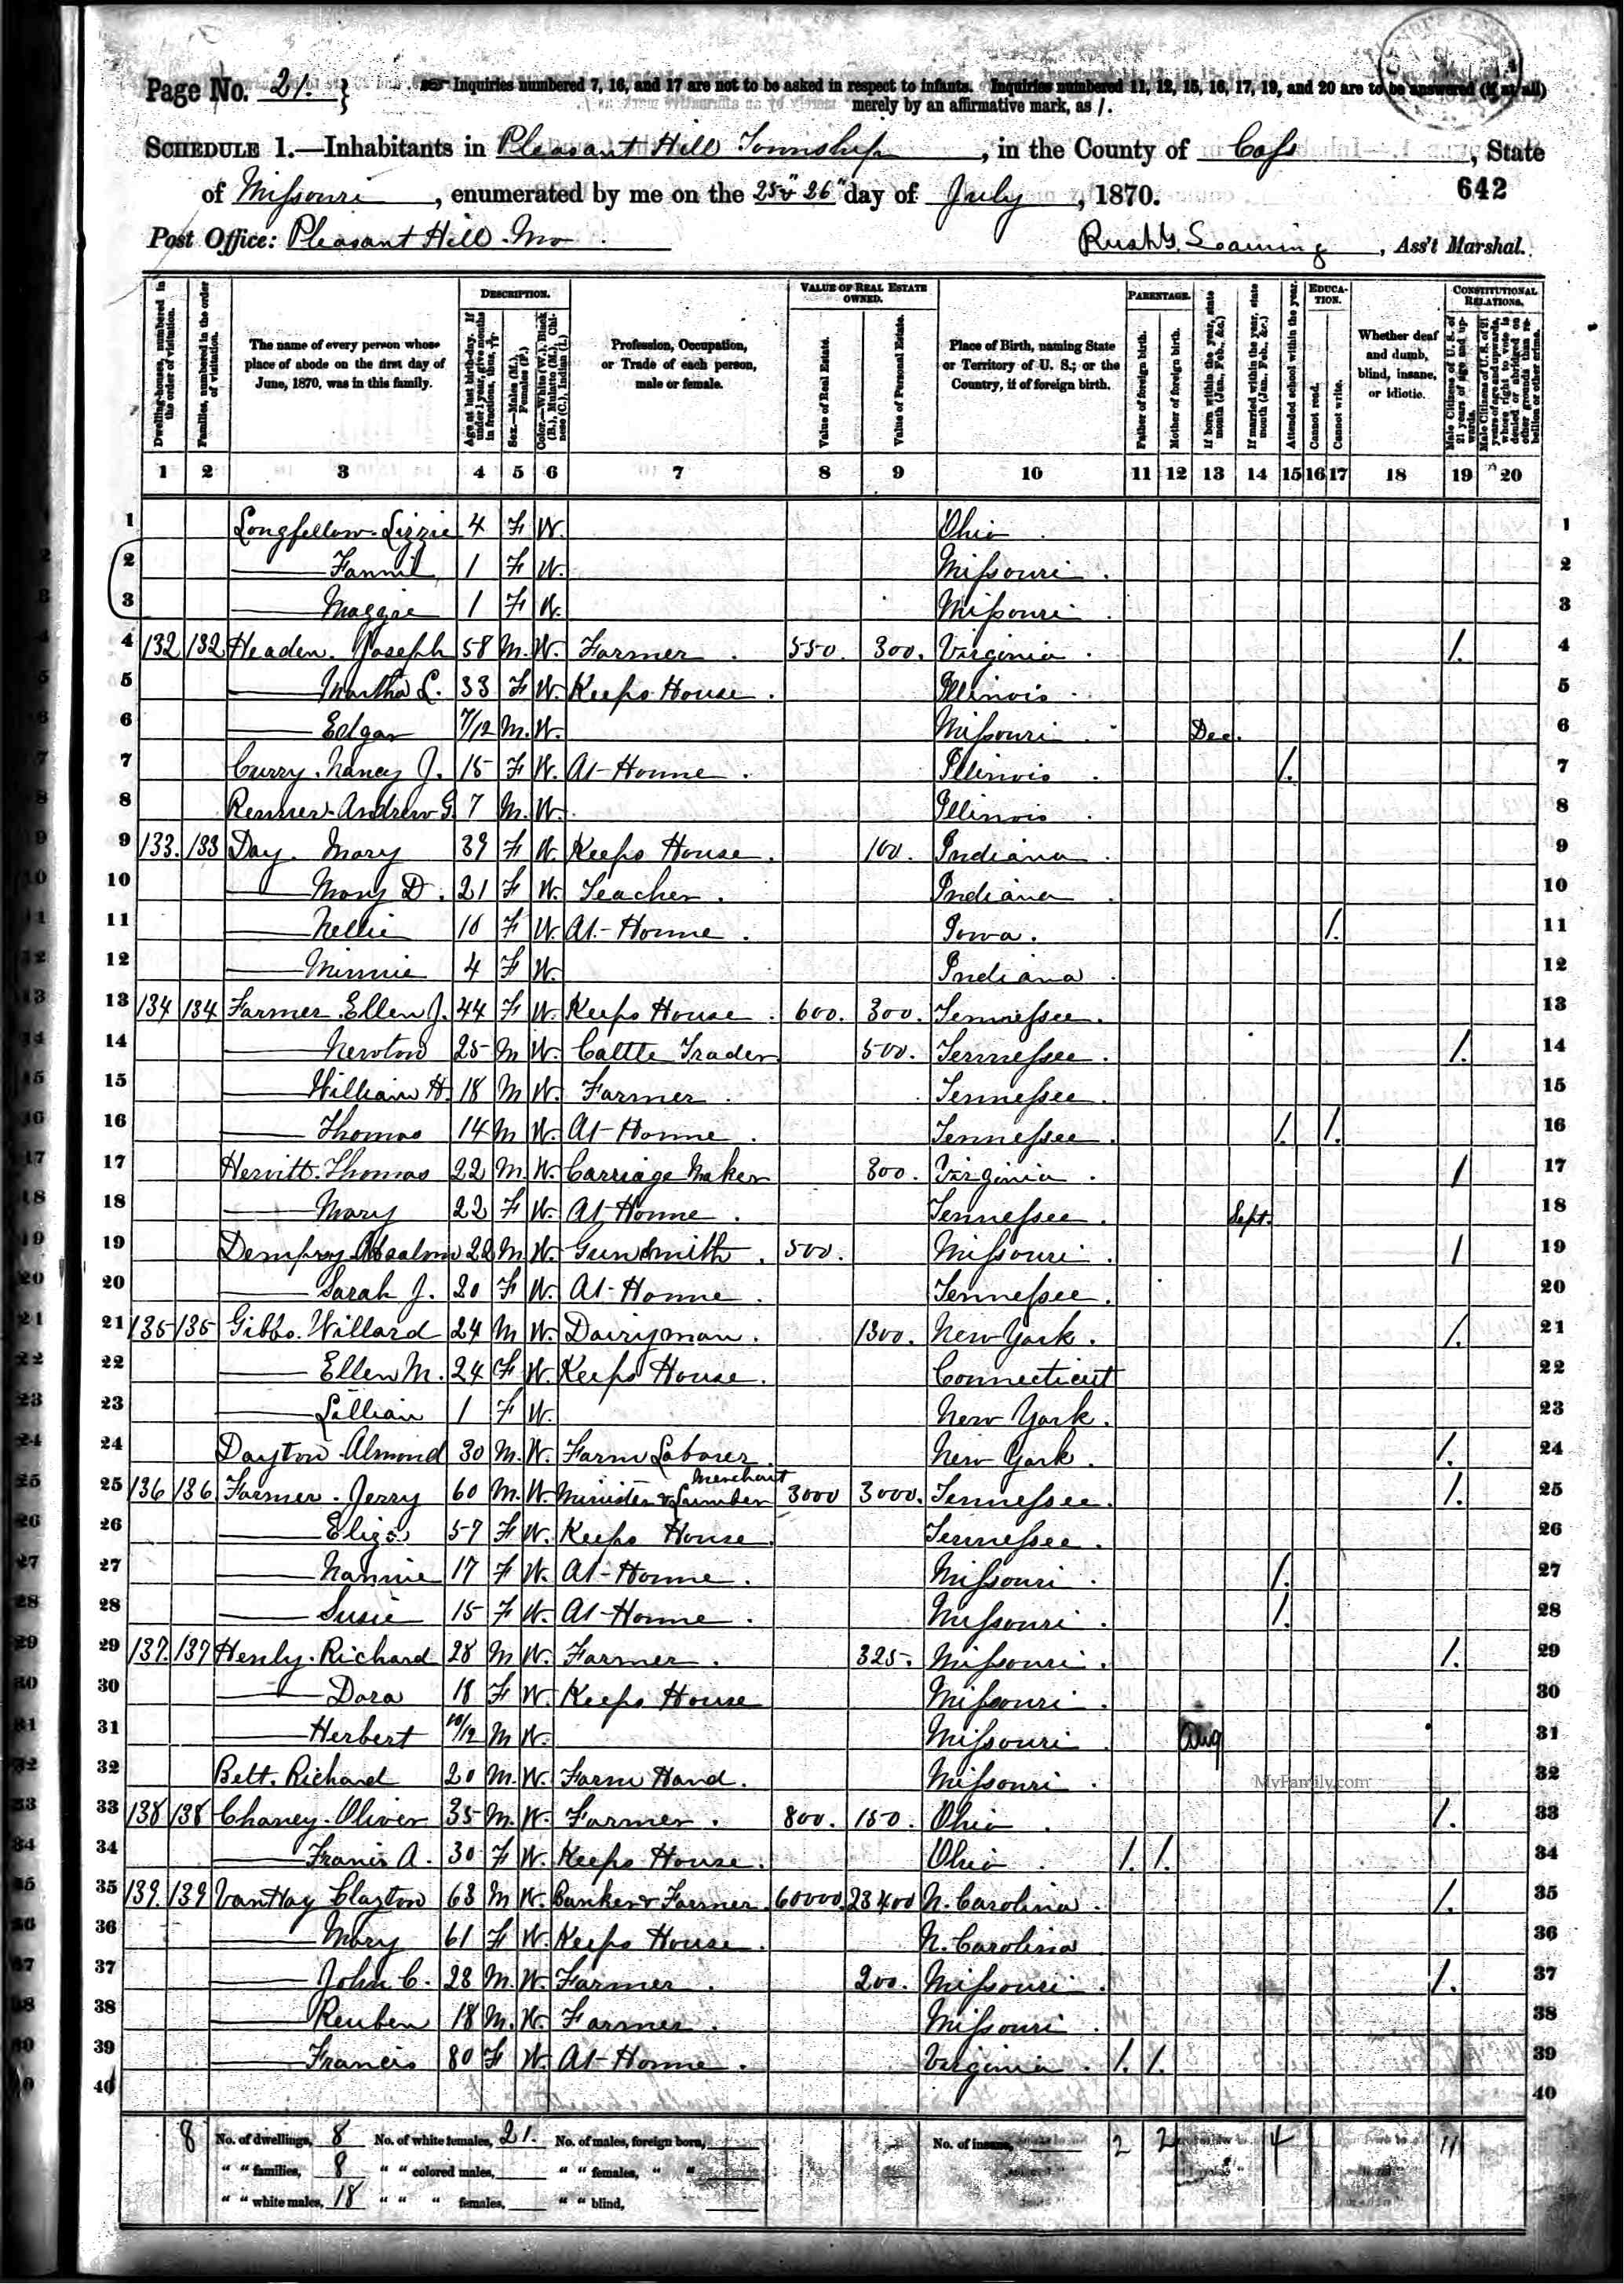 Page No. 21. } Inquiries numbered 7, 16, and 17 are not to be asked in respect to infants. Inquiries numbered 11, 12, 15, 16, 17, 19, and 20 are to be answered (if at all)
merely by an affirmative mark, as /.
SCHEDULE 1.—Inhabitants in Pleasant Hill Township, in the County of Cass, State
of Missouri, enumerated by me on the 25 & 26 day of July, 1870.
642
Post Office: Pleasant Hill Mo. Ass't Marshal.
Dwelling-houses, numbered in the order of visitation.
Families, numbered in the order of visitation.
The name of every person whose place of abode on the first day of June, 1870, was in this family.
DESCRIPTION.
Age at last birth-day. If under 1 year, give months in fractions, thus, 3/12.
Sex.—Males (M.), Females (F.)
Color.—White (W.), Black (B.), Mulatto (M.), Chinese (C.), Indian (I.)
Profession, Occupation, or Trade of each person, male or female.
VALUE OF REAL ESTATE OWNED.
Value of Real Estate.
Value of Personal Estate.
Place of Birth, naming State or Territory of U. S.; or the Country, if of foreign birth.
PARENTAGE.
Father of foreign birth.
Mother of foreign birth.
If born within the year, state month (Jan., Feb., &c.)
If married within the year, state month (Jan., Feb., &c.)
Attended school within the year.
EDUCATION.
Cannot read.
Cannot write.
Whether deaf and dumb, blind, insane, or idiotic.
CONSTITUTIONAL RELATIONS.
Male Citizens of U. S. of 21 years of age and upwards.
Male Citizens of U. S. of 21 years of age and upwards, whose right to vote is denied or abridged on other grounds than rebellion or other crime.
1 2 3 4 5 6 7 8 9 10 11 12 13 14 15 16 17 18 19 20
1 Longfellow Lizzie 4 F W. Ohio 1
2 Fannie 1 F W. Missouri 2
3 Maggie 1 F W. Missouri 3
4 132 132 Headen. Joseph 58 M. W. Farmer 550. 300. Virginia /. 4
5 Martha L. 33 F W. Keeps House Illinois 5
6 Edgar 7/12 M. W. Missouri Dec. 6
7 Curry. Nancy J. 15 F W. At Home Illinois /. 7
8 Andrew G. 7 M. W. Illinois 8
9 133. 133 Day. Mary 39 F W. Keeps House 100. Indiana 9
10 Mary D. 21 F W. Teacher Indiana 10
11 Nellie 10 F W. At Home Iowa. /. 11
12 Minnie 4 F W. Indiana 12
13 134 134 Farmer Ellen J. 44 F W. Keeps House 600. 300. Tennessee. 13
14 Newton 25 M W. Cattle Trader 500. Tennessee. /. 14
15 William H. 18 M W. Farmer Tennessee. 15
16 Thomas 14 M W. At Home Tennessee. /. /. 16
17 Thomas 22 M. W. Carriage Maker 300. Virginia / 17
18 Mary 22 F W. At Home Tennessee. Sept. 18
19 Absalom 22 M. W. Gun Smith 500. Missouri / 19
20 Sarah J. 20 F W. At Home Tennessee. 20
21 135 135 Gibbs. Willard 24 M W. Dairyman. 1300. New York. /. 21
22 Ellen M. 24 F W. Keeps House. Connecticut 22
23 Lillian 1 F W. New York. 23
24 Dayton Almond 30 M. W. Farm Laborer New York. /. 24
25 136 136 Farmer. Jerry 60 M. W. Minister & Lumber Merchant 3000 3000. Tennessee. /. 25
26 Eliza 57 F W. Keeps House Tennessee. 26
27 Nannie 17 F W. At Home. Missouri /. 27
28 Susie 15 F W. At Home. Missouri /. 28
29 137. 137 Henly. Richard 28 M W. Farmer. 325. Missouri /. 29
30 Dora 18 F W. Keeps House Missouri 30
31 Herbert 10/12 M W. Missouri Aug 31
32 Belt. Richard 20 M. W. Farm Hand. Missouri 32
MyFamily.com
33 138 138 Chaney. Oliver 35 M. W. Farmer. 800. 150. Ohio /. 33
34 Francis A. 30 F W. Keeps House. Ohio /. /. 34
35 139. 139 VanHoy Clayton 63 M W. Banker & Farmer. 60000. 23400 N. Carolina. /. 35
36 Mary 61 F W. Keeps House. N. Carolina 36
37 John C. 28 M. W. Farmer. 200. Missouri. /. 37
38 Reuben 18 M. W. Farmer. Missouri 38
39 Francis 80 F W. At Home. Virginia. /. /. 39
40 40
8 No. of dwellings, 8 No. of white females, 21. No. of males, foreign born, No. of insane, 2 2 4 11
" " families, 8 " " colored males, " " females, " "
" " white males, 18 " " " females, " " blind,